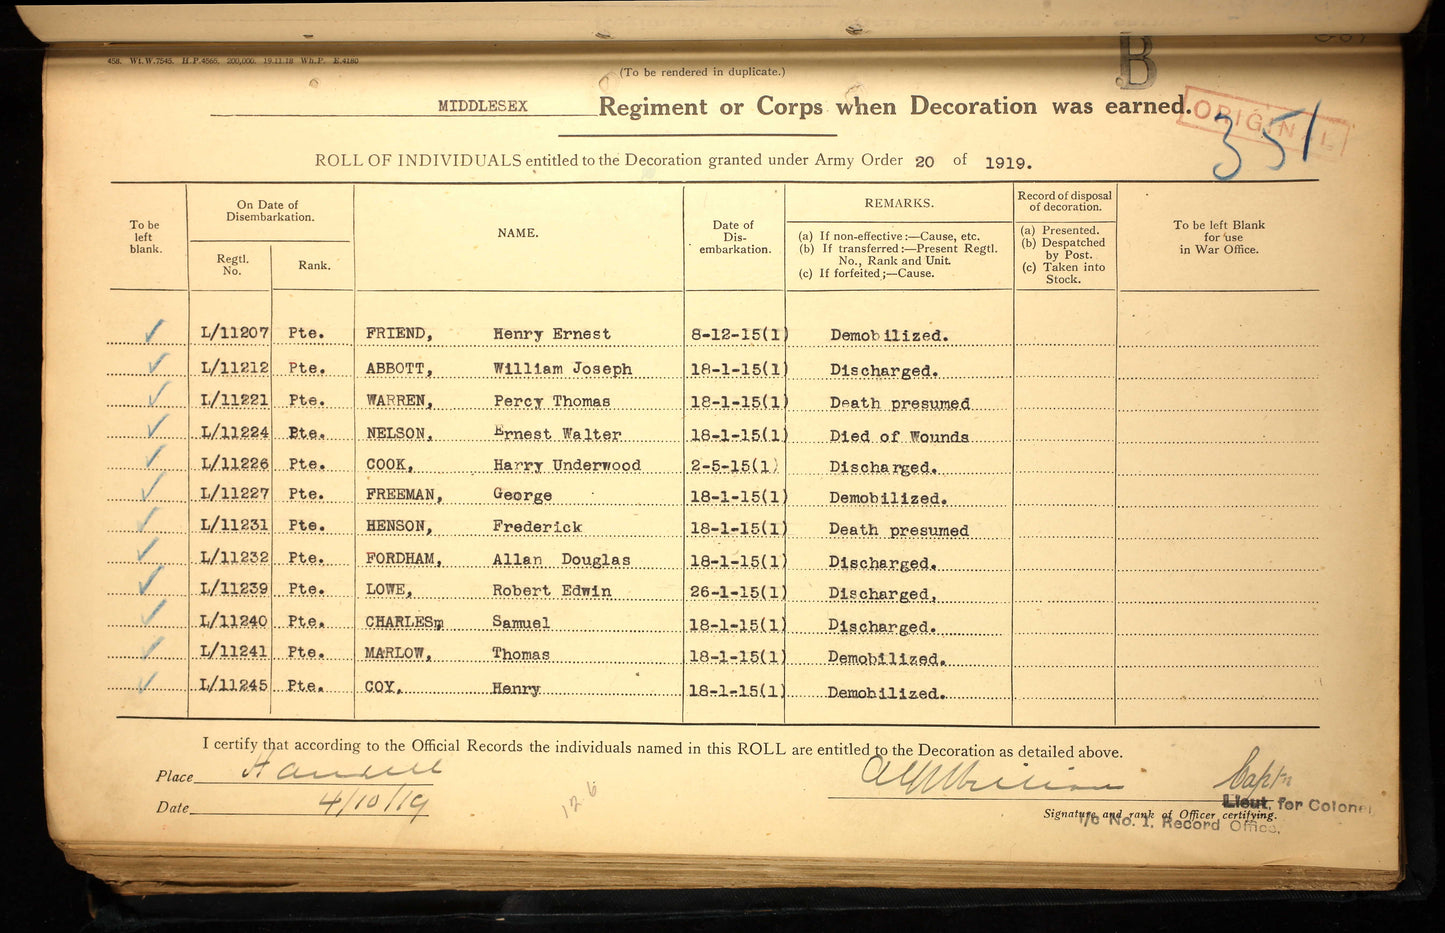 458. Wt. W.7545. H.P.4565. 200,000. 19.11.18 Wh.P. E.4180
(To be rendered in duplicate.)
B
MIDDLESEX Regiment or Corps when Decoration was earned.
ORIGINAL
351
ROLL OF INDIVIDUALS entitled to the Decoration granted under Army Order 20 of 1919.
To be left blank.
On Date of Disembarkation.
Regtl. No.
Rank.
NAME.
Date of Dis-embarkation.
REMARKS.
(a) If non-effective:—Cause, etc.
(b) If transferred:—Present Regtl. No., Rank and Unit.
(c) If forfeited;—Cause.
Record of disposal of decoration.
(a) Presented.
(b) Despatched by Post.
(c) Taken into Stock.
To be left Blank for use in War Office.
L/11207 Pte. FRIEND, Henry Ernest 8-12-15(1) Demobilized.
L/11212 Pte. ABBOTT, William Joseph 18-1-15(1) Discharged.
L/11221 Pte. WARREN, Percy Thomas 18-1-15(1) Death presumed
L/11224 Pte. NELSON, Ernest Walter 18-1-15(1) Died of Wounds
L/11226 Pte. COOK, Harry Underwood 2-5-15(1) Discharged.
L/11227 Pte. FREEMAN, George 18-1-15(1) Demobilized.
L/11231 Pte. HENSON, Frederick 18-1-15(1) Death presumed
L/11232 Pte. FORDHAM, Allan Douglas 18-1-15(1) Discharged.
L/11239 Pte. LOWE, Robert Edwin 26-1-15(1) Discharged.
L/11240 Pte. CHARLESm Samuel 18-1-15(1) Discharged.
L/11241 Pte. MARLOW, Thomas 18-1-15(1) Demobilized.
L/11245 Pte. COX, Henry 18-1-15(1) Demobilized.
I certify that according to the Official Records the individuals named in this ROLL are entitled to the Decoration as detailed above.
Place
Date 4/10/19
126
Captn
Lieut. for Colonel
Signature and rank of Officer certifying.
i/c No. 1. Record Office.